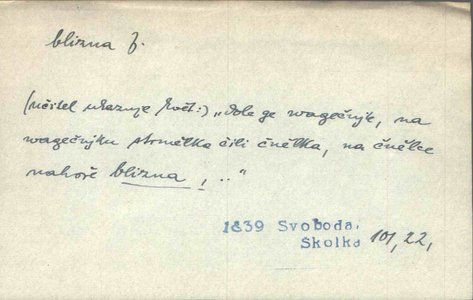 blizna f.
(učitel ukazuje květ:) „dole ge wagečnjk, na
wagečnjku strnělka čili čnělka, na čnělce
nahoře blizna, .."
1839 Svoboda,
Školka 101, 22,